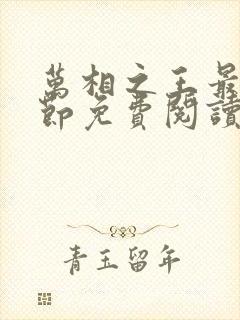 萬相之王最
節免費閱讀
青玉留年